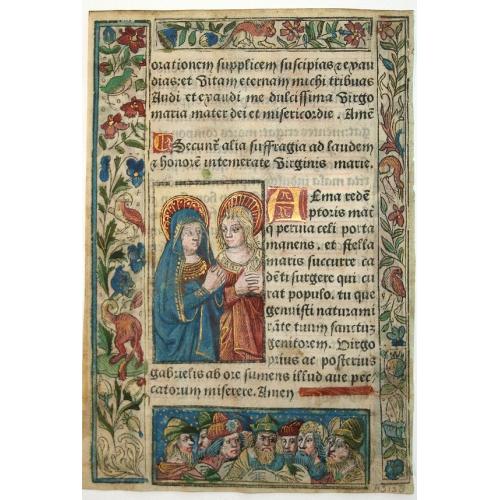 orationem supplicem suscipias ⁊ exau
dias: et Vitam eternam michi tribuas
Audi et exaudi me dulcissima Virgo
maria mater dei et misericordie. Amē
Secunt̄ alia suffragia ad laudem
⁊ honorē intemerate Virginis marie.
Alma redē
ptoris mat̄
q̄ peruia celi porta
manens. et stella
maris succurre ca
dēti surgere qui cu
rat populo. tu que
genuisti naturami
rāte tuum sanctuȝ
genitorem. Virgo
prius ac posterius
gabrielis ab ore sumens illud aue pec
catorum miserere. Amen